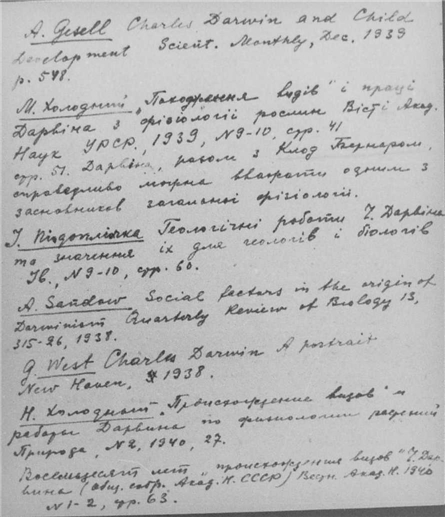 A. Gesell Charles Darwin and Child
development Scient. Monthly, Dec. 1939
p. 548.
М. Холодний „Походження видів" і праці
Дарвіна з фізіології рослин Вісті Акад.
Наук УРСР, 1939, N9-10, стр. 41
стр. 51. Дарвіна, разом з Клод Бернаром,
справедливо можна вважати одним з
засновників загальної фізіології.
І. Підоплічка Геологічні роботи Ч. Дарвіна
та значення їх для геологів і біологів
Ib., N9-10, стр. 60.
A. Sandow Social factors in the origin of
Darwinism Quarterly Review of Biology 13,
315-26, 1938.
G. West Charles Darwin A portrait
New Haven, 1938.
Н. Холодный „Происхождение видов" и
работы Дарвина по физиологии растений
Природа, N2, 1940, 27.
Восемьдесят лет „происхождения видов" Ч. Дар-
вина (общ. собр. Акад. Н. СССР) Вестн. Акад. Н. 1940
N1-2, стр. 63.